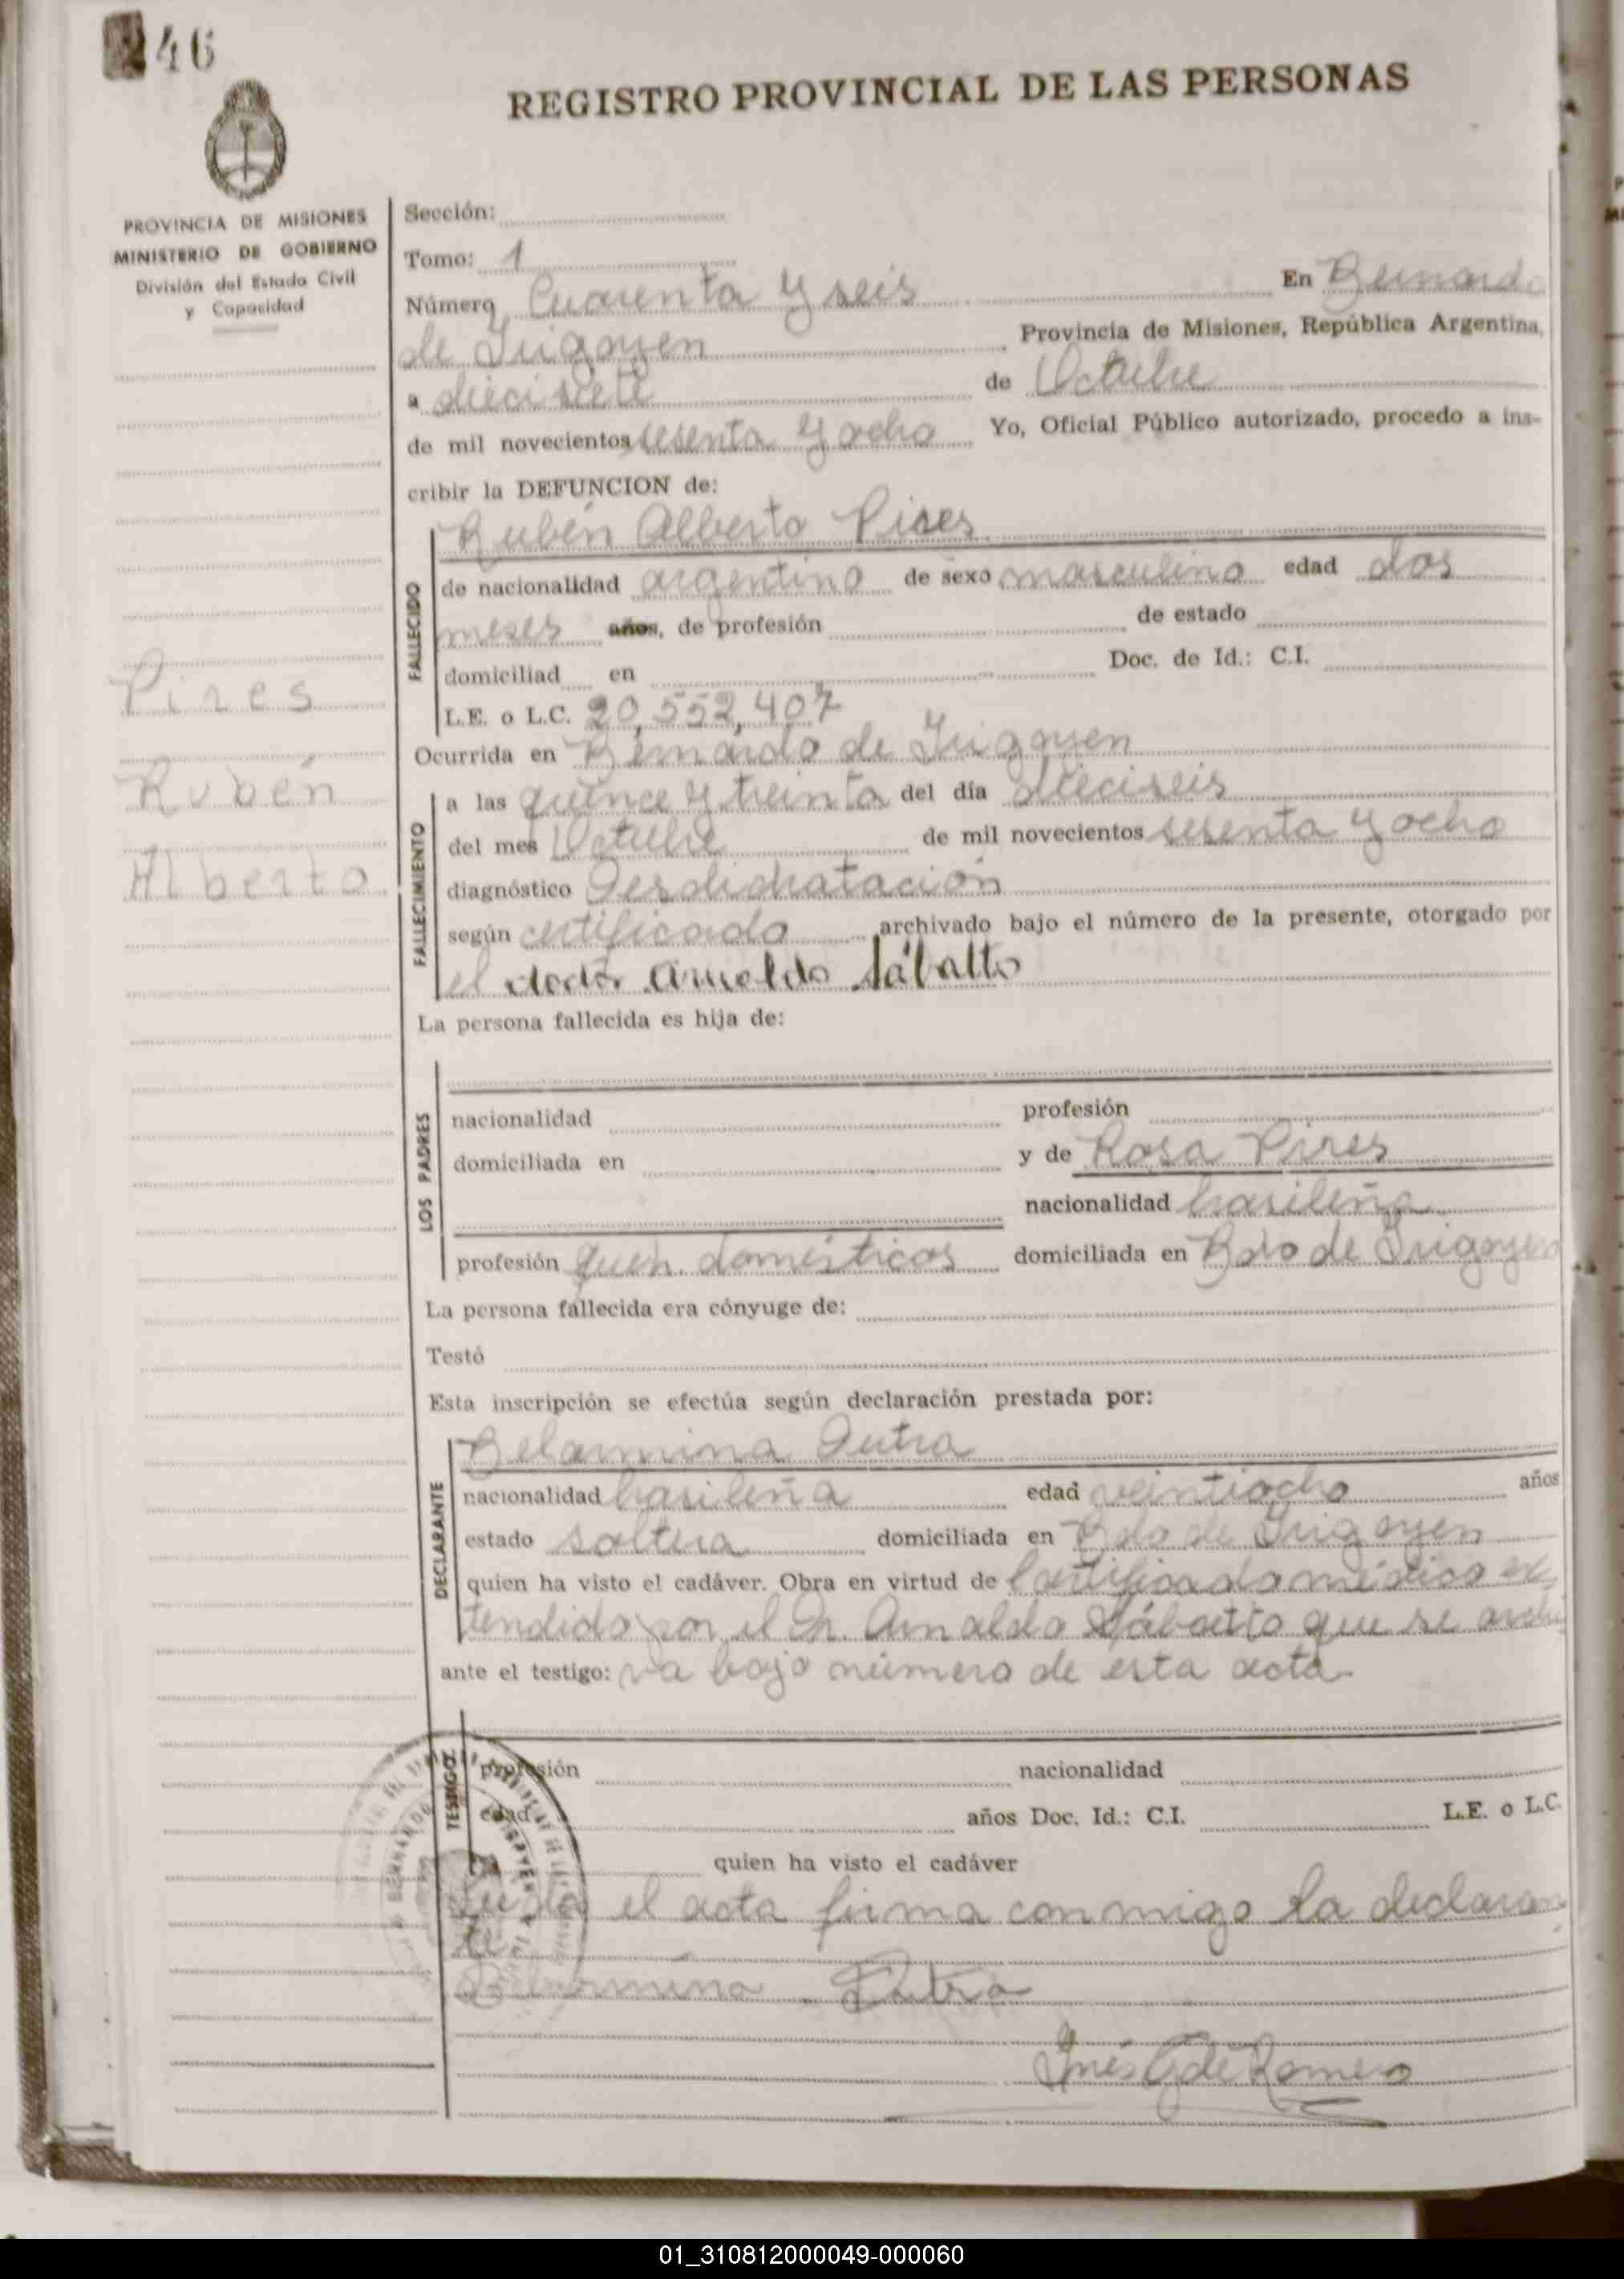 46
REGISTRO PROVINCIAL DE LAS PERSONAS
PROVINCIA DE MISIONES
MINISTERIO DE GOBIERNO
División del Estado Civil
y Capacidad
Pires
Rubén
Alberto
Sección:
Tomo: 1
Número Cuarenta y seis En Bernardo
de Irigoyen Provincia de Misiones, República Argentina,
a diecisiete de Octubre
de mil novecientos sesenta y ocho Yo, Oficial Público autorizado, procedo a ins-
cribir la DEFUNCION de:
Rubén Alberto Pires
FALLECIDO
de nacionalidad argentino de sexo masculino edad dos
meses años, de profesión de estado
domiciliad en Doc. de Id.: C.I.
L.E. o L.C. 20,552,407
Ocurrida en Bernardo de Irigoyen
FALLECIMIENTO
a las quince y treinta del día dieciseis
del mes Octubre de mil novecientos sesenta y ocho
diagnóstico Desdidratación
según certificado archivado bajo el número de la presente, otorgado por
el doctor Arnaldo Sábatto
La persona fallecida es hija de:
LOS PADRES
nacionalidad profesión
domiciliada en y de Rosa Pires
nacionalidad brasileña
profesión queh. domésticos domiciliada en Bdo de Irigoyen
La persona fallecida era cónyuge de:
Testó
Esta inscripción se efectúa según declaración prestada por:
DECLARANTE
Belarmina Dutra
nacionalidad brasileña edad veintiocho años
estado soltera domiciliada en Bdo de Irigoyen
quien ha visto el cadáver. Obra en virtud de Certificado médico ex
tendido por el Dr. Arnaldo Sábatto que se archi
ante el testigo: va bajo número de esta acta
TESTIGO
profesión nacionalidad
edad años Doc. Id.: C.I. L.E. o L.C.
quien ha visto el cadáver
Leída el acta firma conmigo la declaran
te
Belarmina Dutra
Inés G de Romero
01_310812000049-000060